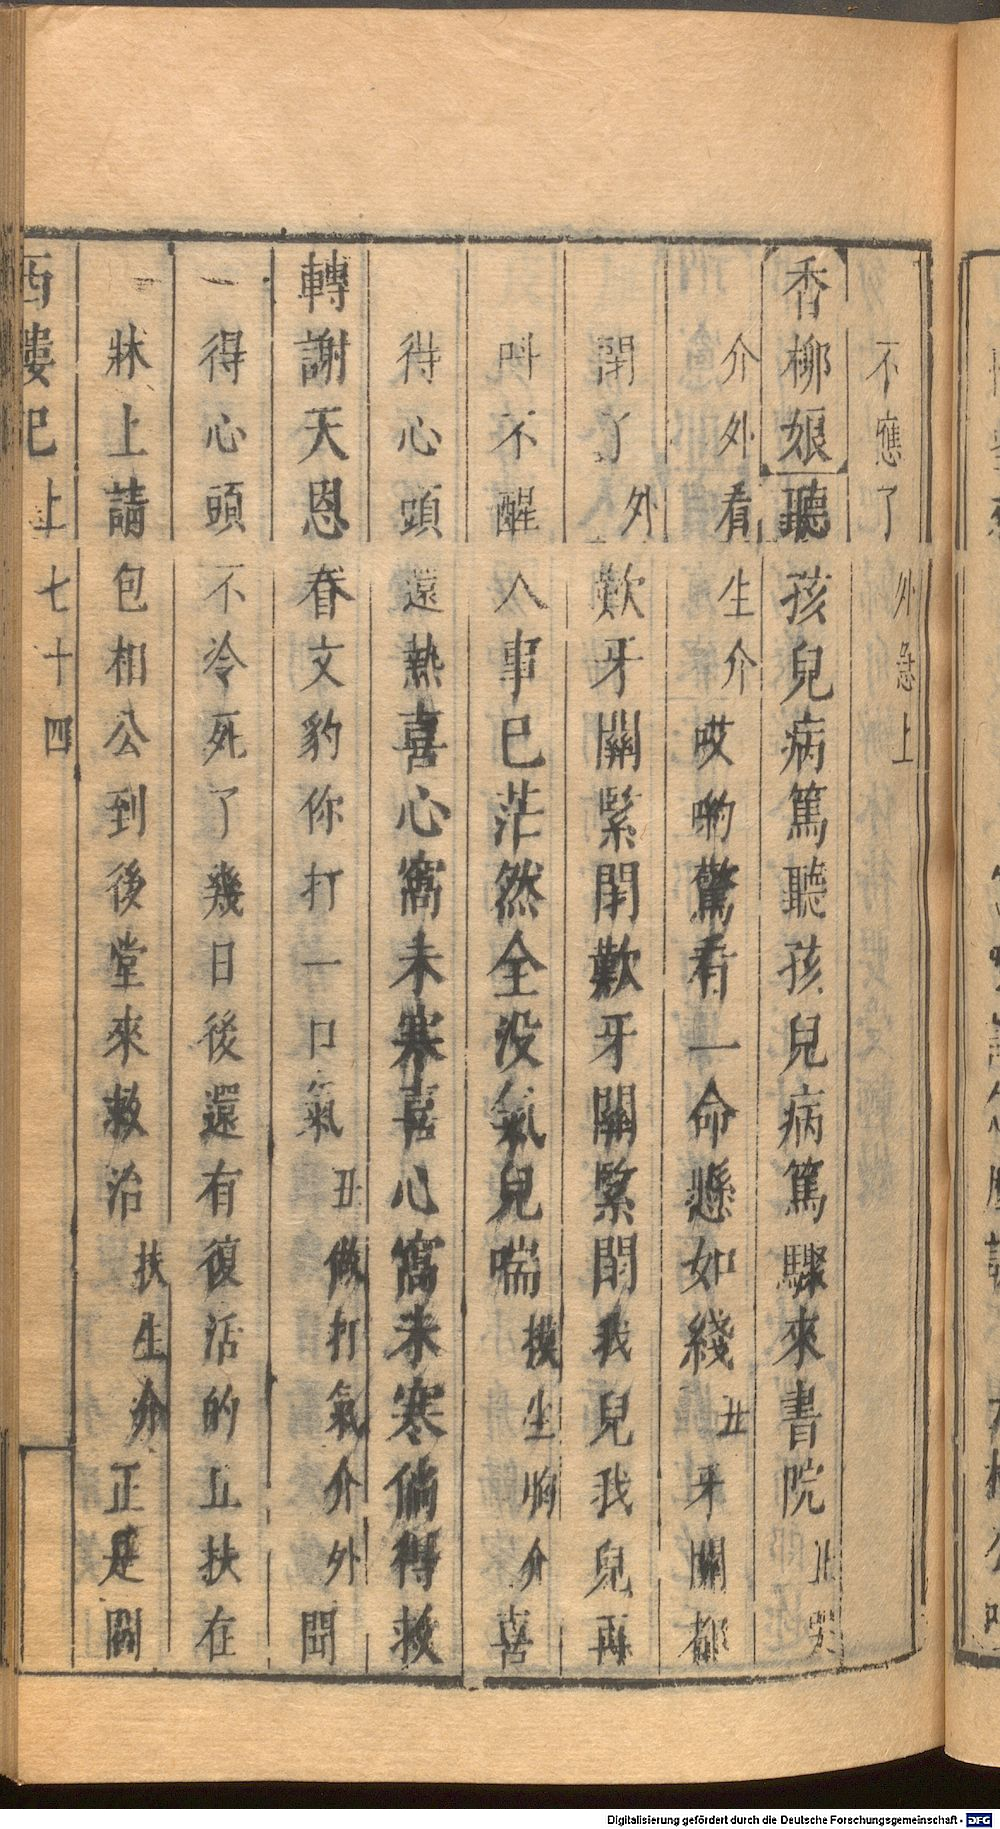 不應了 外急上
香柳娘 聽孩兒病篤聽孩兒病篤驟來書院 丑哭
介外看生介 哎喲驚看一命懸如綫 丑 牙關都
閉了 外 歎牙關緊閉歎牙關緊閉我兒我兒再
叫不醒人事已茫然全没氣兒喘 摸生胸介 喜
得心頭還熱喜心窩未寒喜心窩未寒倘得救
轉謝天恩眷文豹你打一口氣 丑做打氣介外 聞
一得心頭不冷死了幾日後還有復活的丑扶在
牀上請包相公到後堂來救治 扶生介 正是閻
西樓記 上 七十四
Digitalisierung gefördert durch die Deutsche Forschungsgemeinschaft - DFG